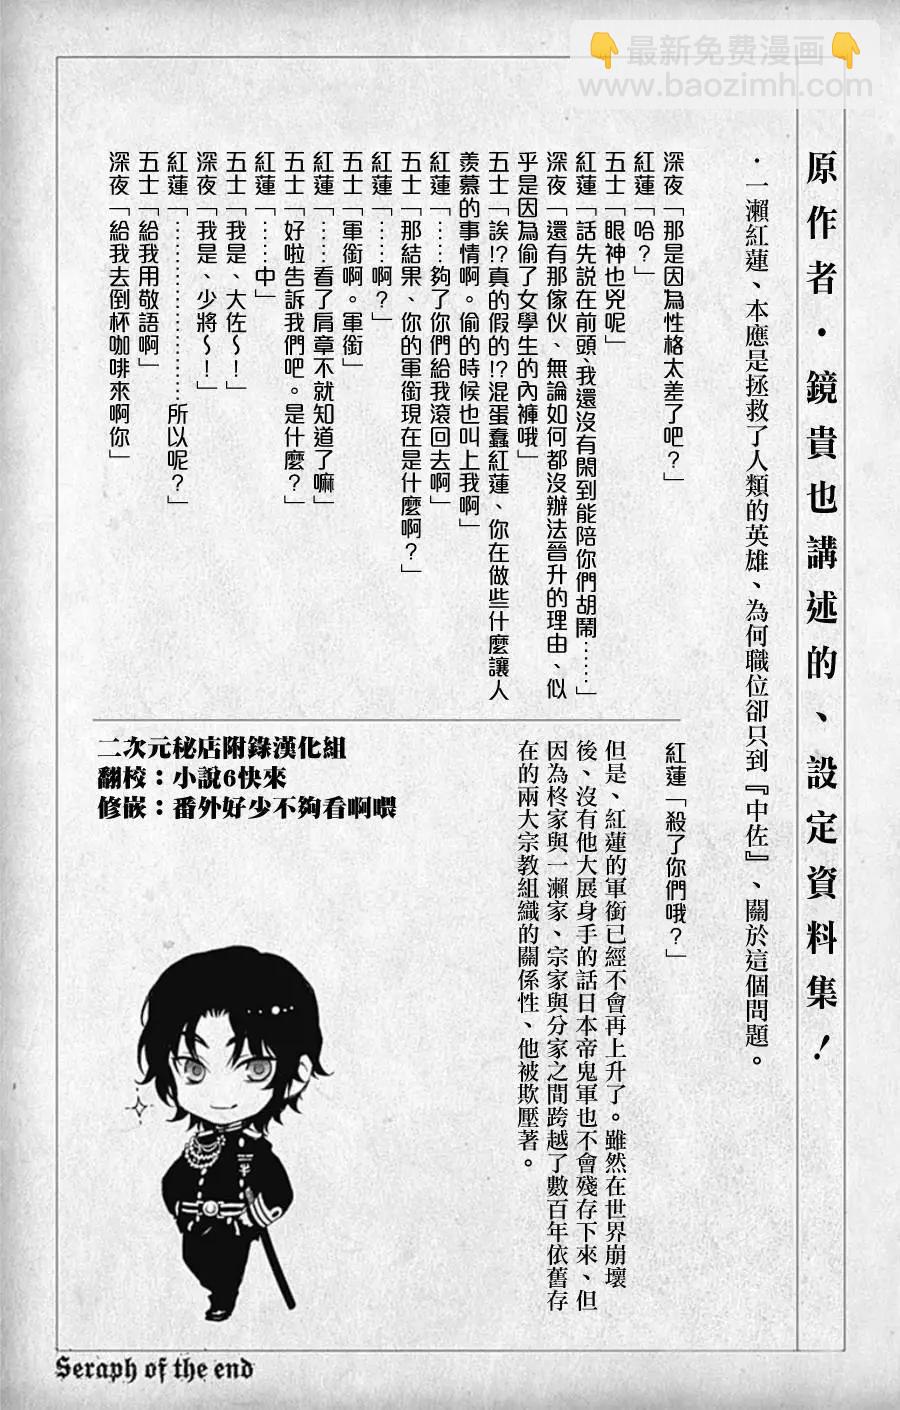 👇最新免费漫画👇
www.baozimh.com
原作者・鏡貴也講述的、設定資料集！
・一瀨紅蓮、本應是拯救了人類的英雄、為何職位卻只到『中佐』、關於這個問題。
深夜「那是因為性格太差了吧？」
紅蓮「哈？」
五士「眼神也兇呢」
紅蓮「話先説在前頭、我還沒有閑到能陪你們胡鬧……」
深夜「還有那傢伙、無論如何都沒辦法晉升的理由、似
乎是因為偷了女學生的內褲哦」
五士「誒!?真的假的!?混蛋蠢紅蓮、你在做些什麼讓人
羨慕的事情啊。偷的時候也叫上我啊」
紅蓮「……夠了你們給我滾回去啊」
五士「那結果、你的軍銜現在是什麼啊？」
紅蓮「……啊？」
五士「軍銜啊。軍銜」
紅蓮「……看了肩章不就知道了嘛」
五士「好啦告訴我們吧。是什麼？」
紅蓮「……中」
五士「我是、大佐～！」
深夜「我是、少將～！」
紅蓮「…………………所以呢？」
五士「給我用敬語啊」
深夜「給我去倒杯咖啡來啊你」
紅蓮「殺了你們哦？」
但是、紅蓮的軍銜已經不會再上升了。雖然在世界崩壞
後、沒有他大展身手的話日本帝鬼軍也不會殘存下來、但
因為柊家與一瀨家、宗家與分家之間跨越了數百年依舊存
在的兩大宗教組織的關係性、他被欺壓著。
二次元秘店附錄漢化組
翻校：小說6快來
修嵌：番外好少不夠看啊喂
Seraph of the end